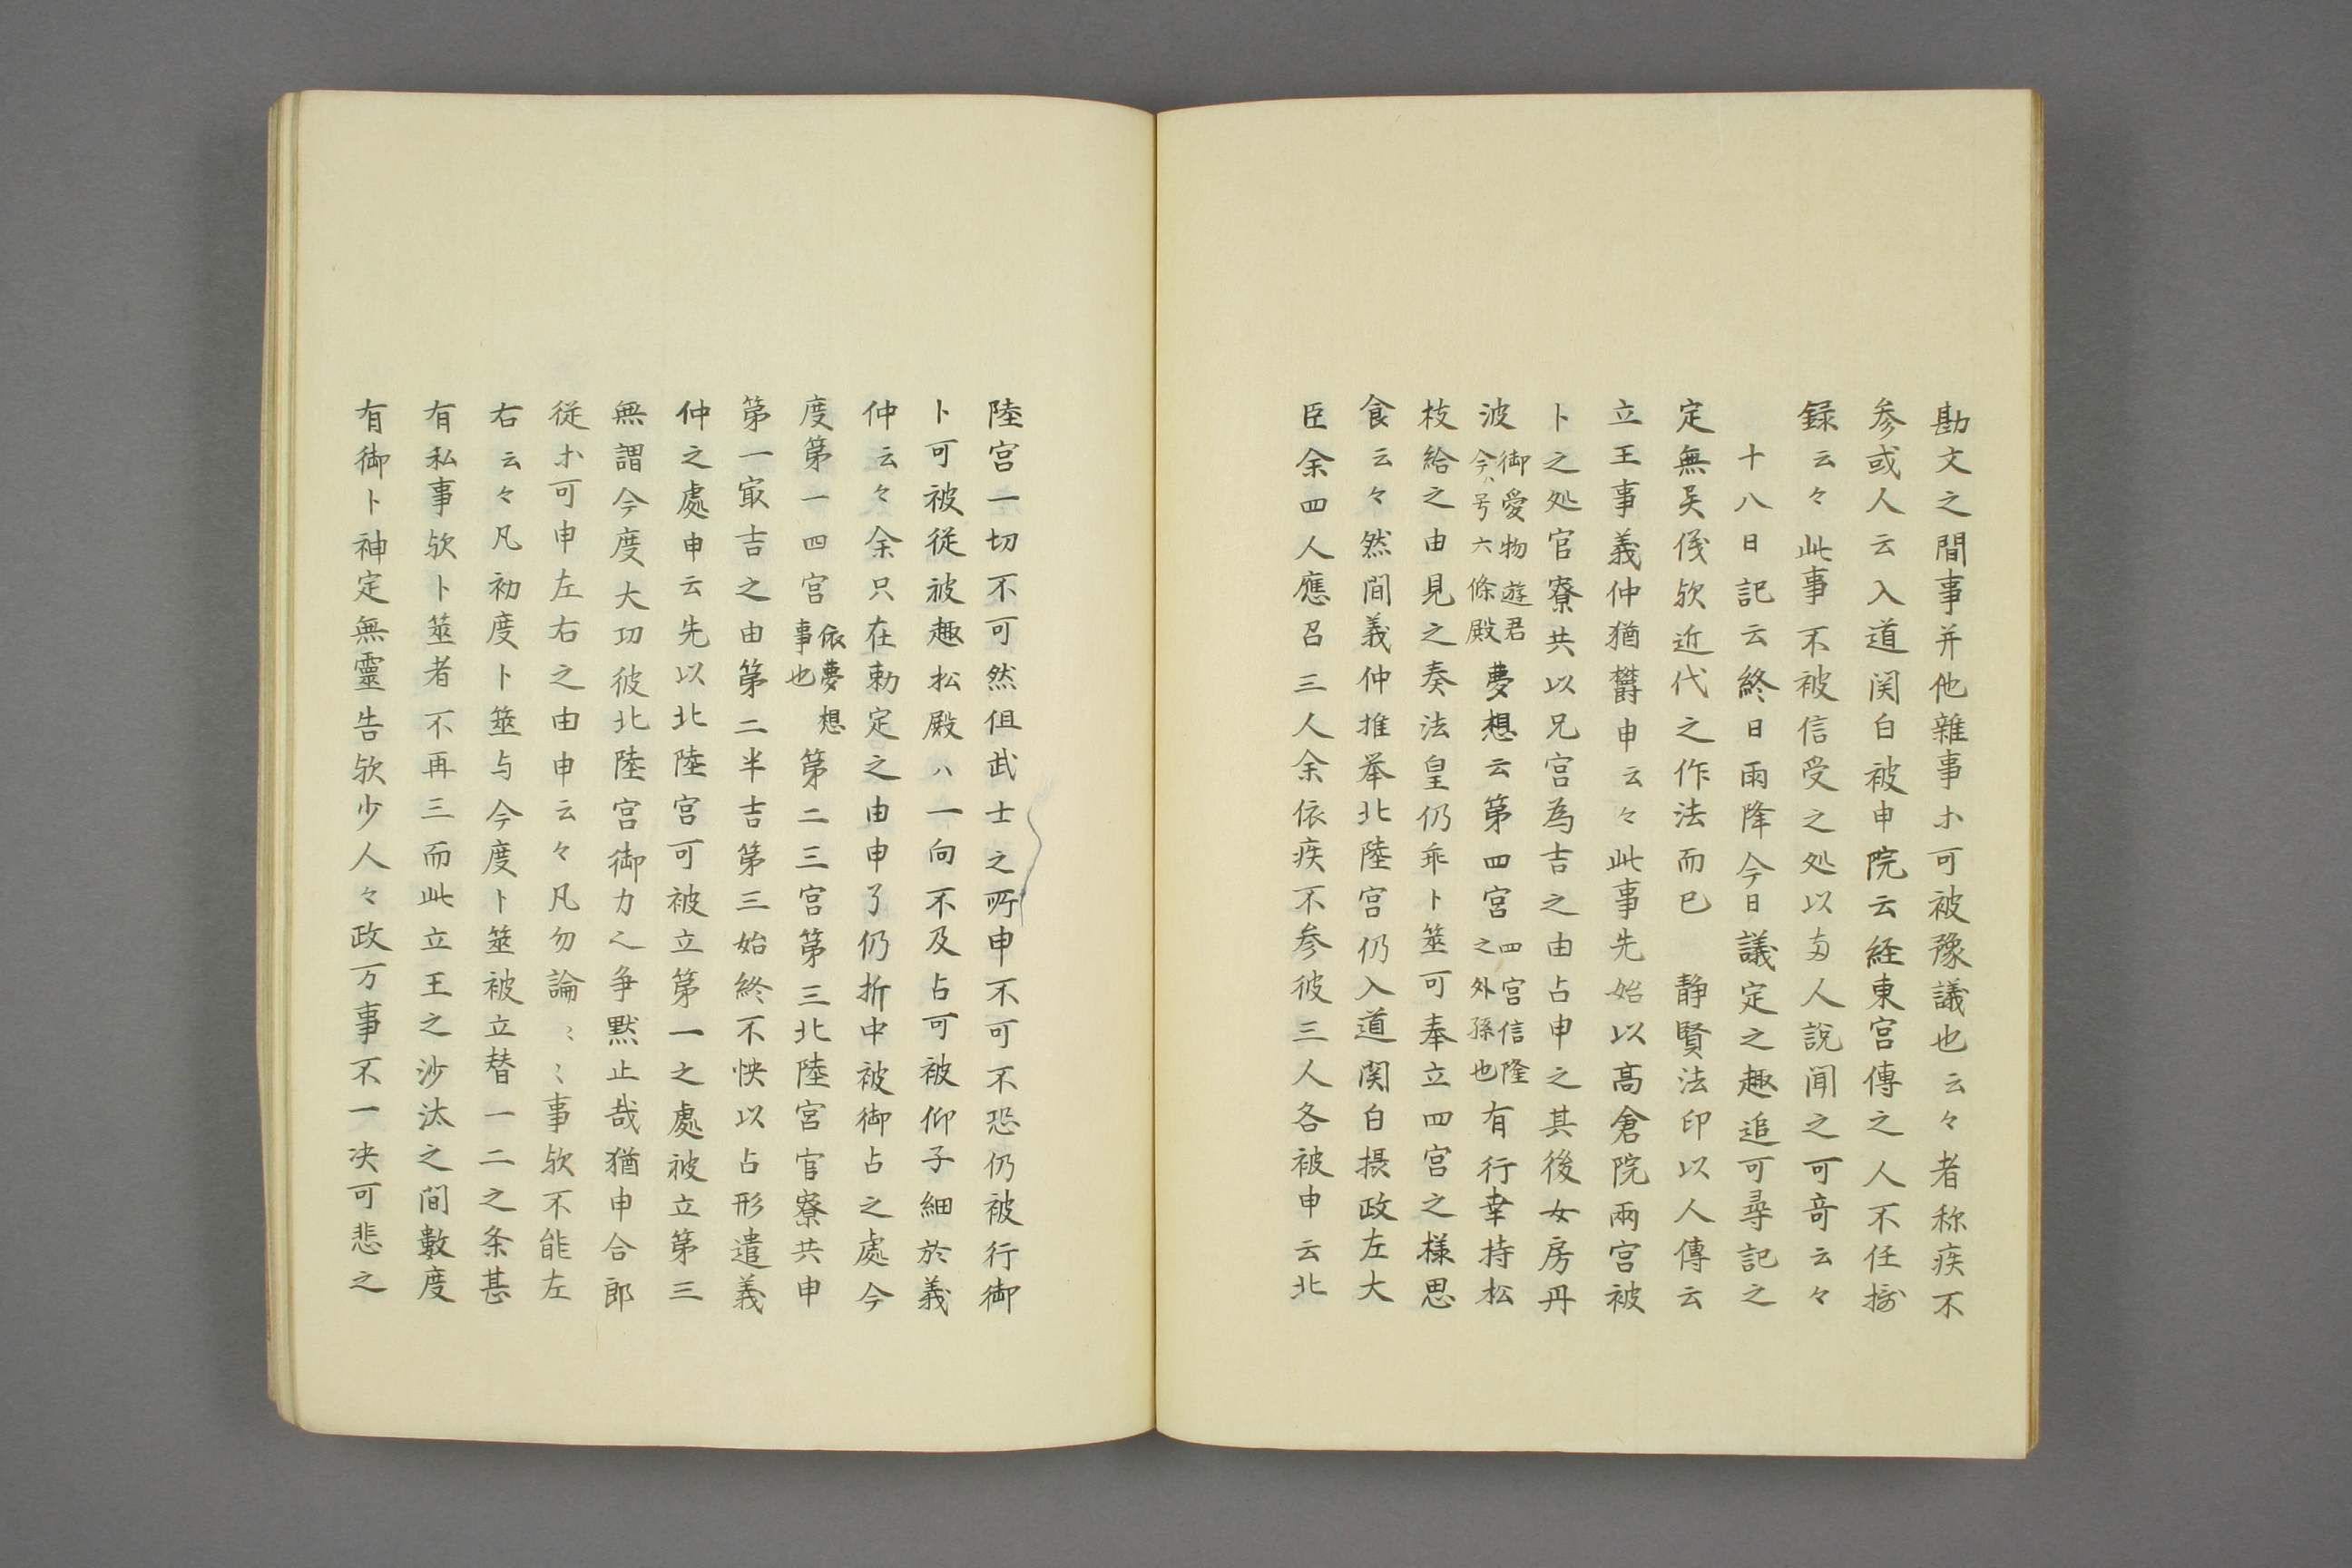 勘文之間事并他雑事ホ可被豫議也云々者称疾不
参或人云入道関白被申院云経東宮傳之人不任摂
録云々此事不被信受之処以両人説聞之可奇云々
十八日記云終日雨降今日議定之趣追可尋記之
定無異儀欤近代之作法而已　静賢法印以人傳云
立王事義仲猶欝申云々此事先始以高倉院兩宮被
卜之処官寮共以兄宮為吉之由占申之其後女房丹
波御愛物遊君今ハ号六條殿夢想云第四宮四宮信隆之外孫也有行幸持松
枝給之由見之奏法皇仍乖卜筮可奉立四宮之様思
食云々然間義仲推挙北陸宮仍入道関白摂政左大
臣余四人應召三人余依疾不参彼三人各被申云北
陸宮一切不可然但武士之所申不可不恐仍被行御
卜可被従彼趣松殿ハ一向不及占可被仰子細於義
仲云々余只在勅定之由申了仍折中被御占之處今
度第一四宮依夢想事也第二三宮第三北陸宮官寮共申
第一㝡吉之由第二半吉第三始終不快以占形遣義
仲之處申云先以北陸宮可被立第一之處被立第三
無謂今度大功彼北陸宮御力之争黙止哉猶申合郎
従ホ可申左右之由申云々凡勿論〻〻事欤不能左
右云々凡初度卜筮与今度卜筮被立替一二之条甚
有私事欤卜筮者不再三而此立王之沙汰之間數度
有御卜神定無靈告欤少人々政万事不一决可悲之